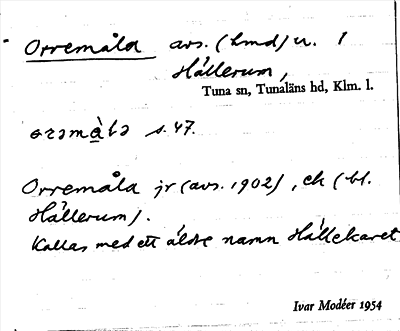 Orremåla avs. (hmd) u. 1
Hällerum,
Tuna sn, Tunaläns hd, Klm. l.
ɷrəmà̱lə s. 47.
Orremåla jr (avs. 1902), ek (bl.
Hällerum).
Kallas med ett äldre namn Hällekaret
Ivar Modéer 1954